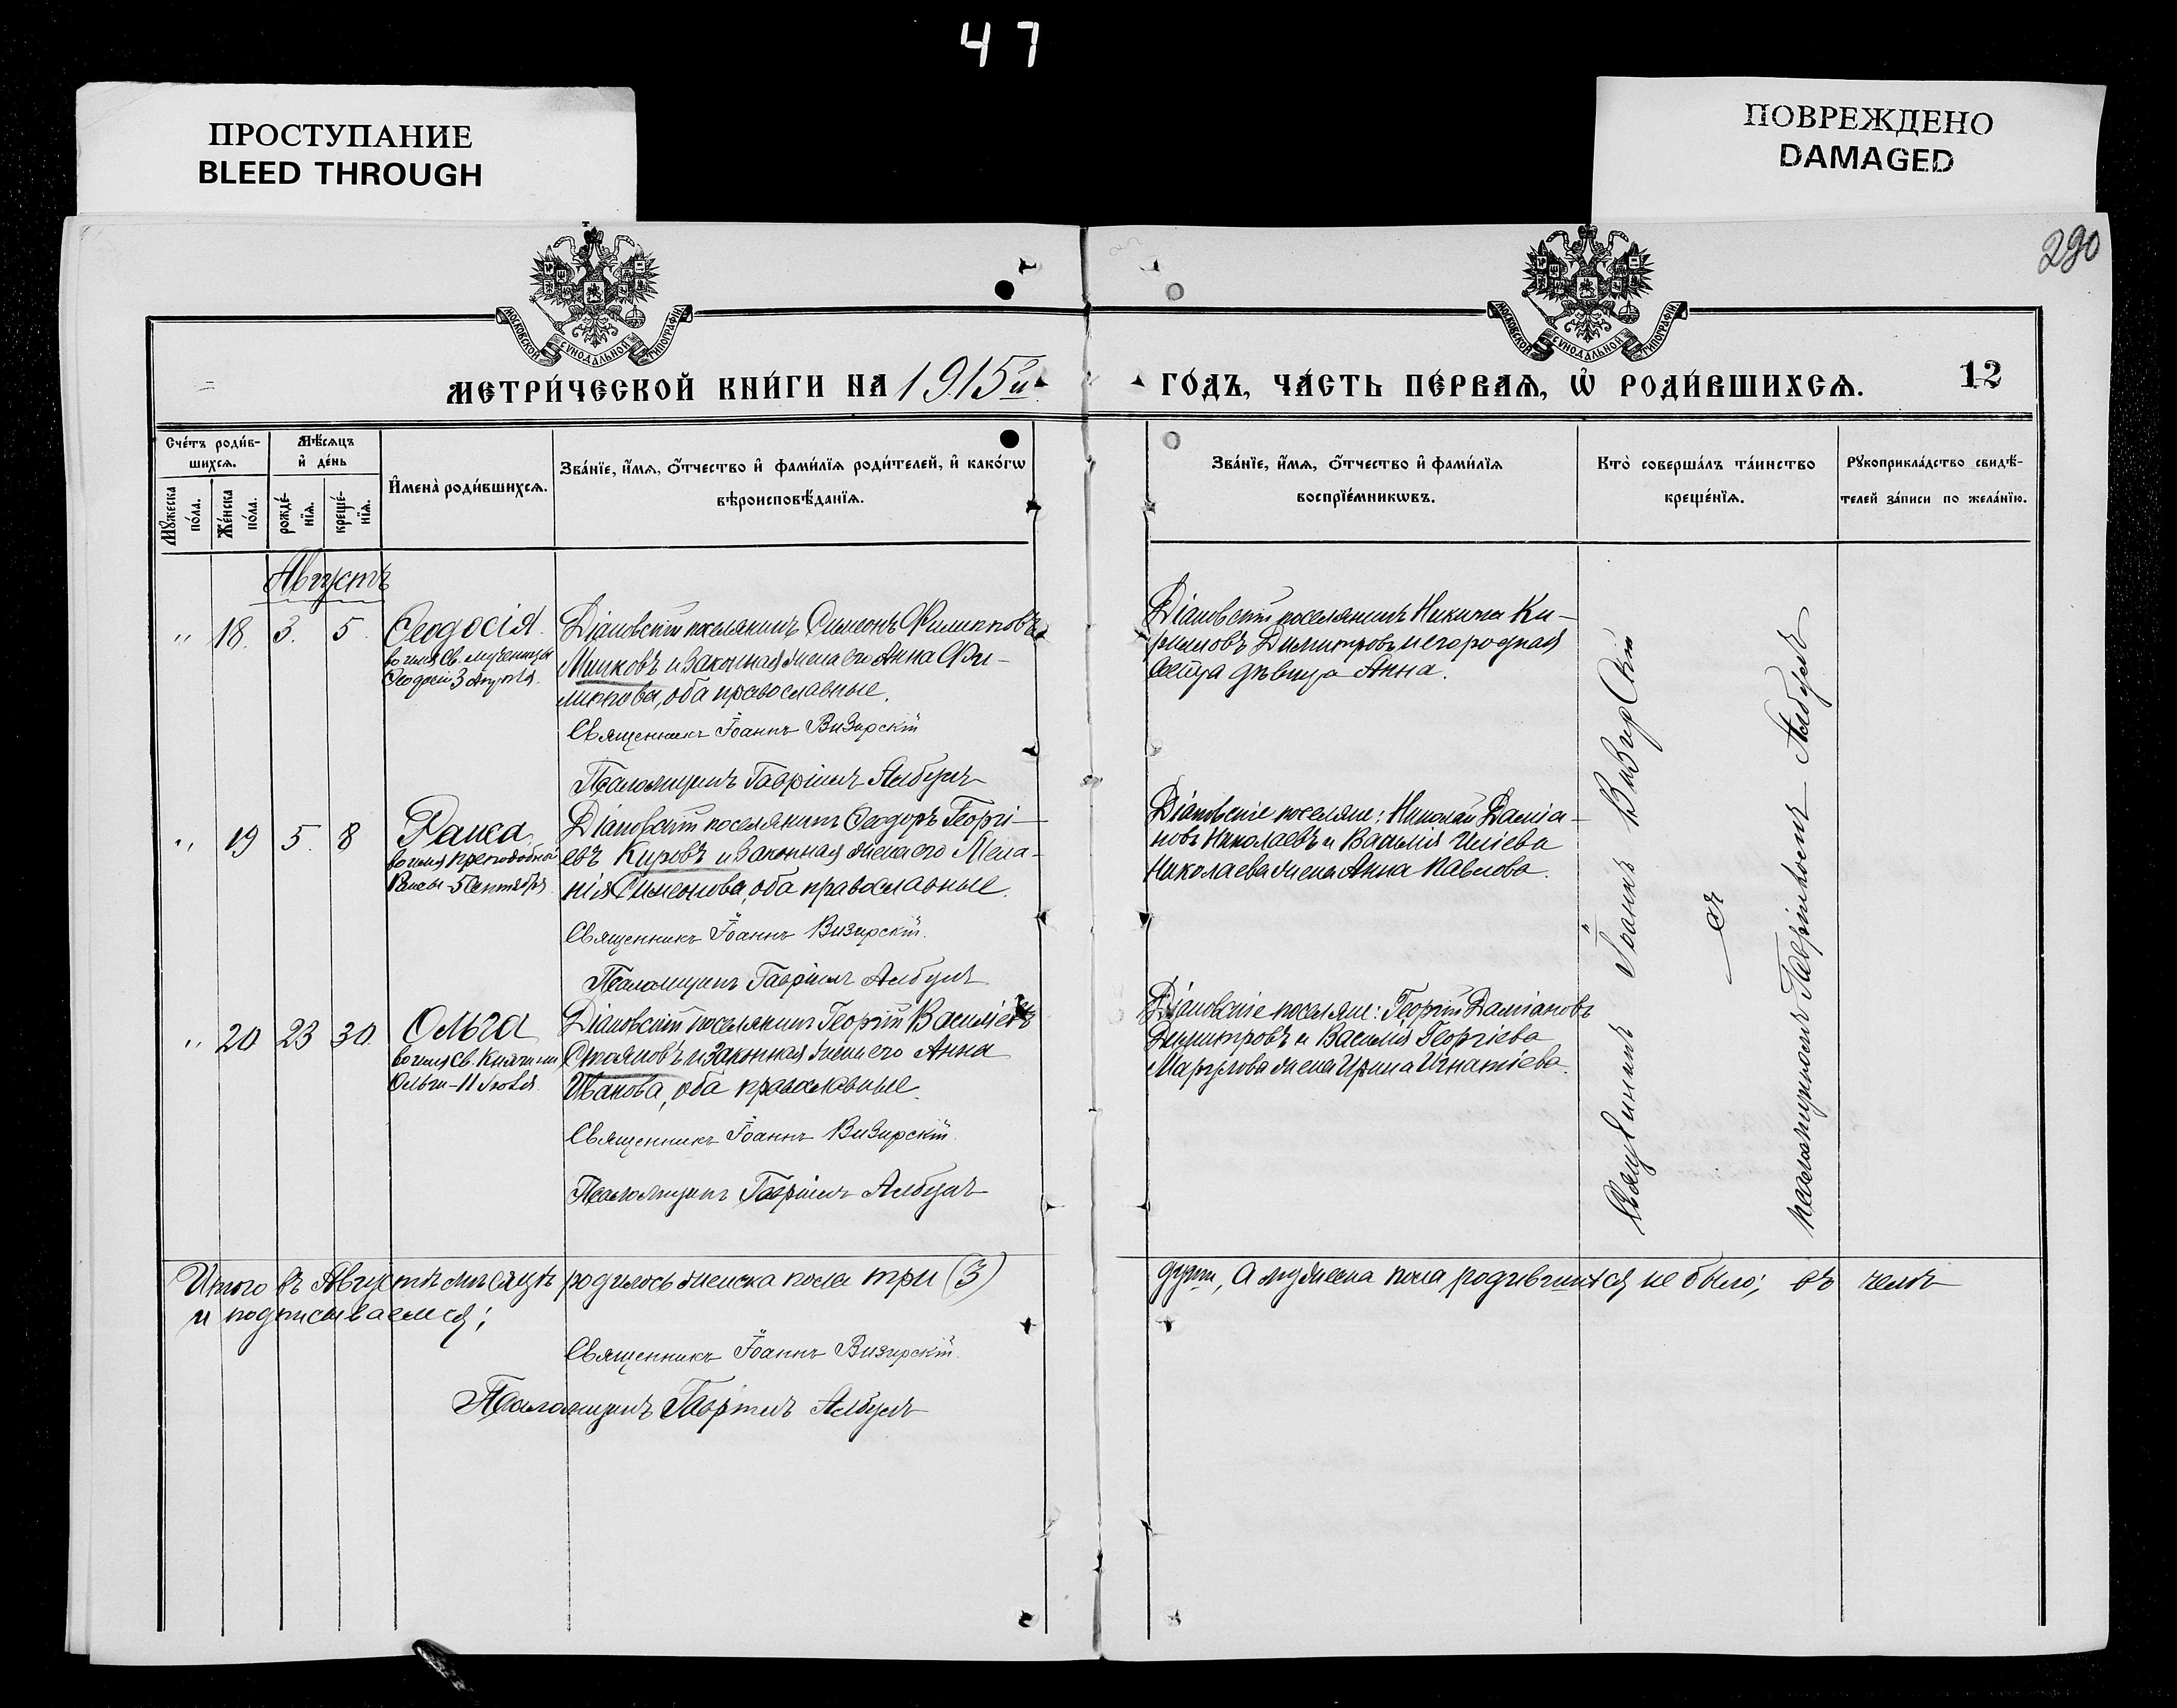 47
ПРОСТУПАНИЕ
BLEED THROUGH
ПОВРЕЖДЕНО
DAMAGED
290
МОСКОВСКОЙ СѴНОДАЛЬНОЙ ТИПОГРАФІИ
МОСКОВСКОЙ СѴНОДАЛЬНОЙ ТИПОГРАФІИ
МЕТРИ́ЧЕСКОЙ КНИ́ГИ НА 1915й
ГО́ДЪ, ЧА́СТЬ ПЕ́РВАѦ, Ѡ҆ РОДИ́ВШИХСѦ.
12
Сче́тъ роди́в-
шихсѧ.
Мѣ́сяцъ
и҆ де́нь
Мꙋ́жеска
по́ла.
Же́нска
по́ла.
рожде́-
нїѧ.
креще́-
нїѧ.
И҆мена̀ роди́вшихсѧ.
Зва́нїе, и҆́мѧ, ѻ҆́тчество и҆ фами́лїѧ роди́телей, и҆ како́гѡ
вѣроисповѣ́данїѧ.
Зва́нїе, и҆́мѧ, ѻ҆́тчество и҆ фами́лїѧ
воспрїе́мникѡвъ.
Кто̀ соверша́лъ та́инство
креще́нїѧ.
Рꙋкоприкла́дство свидѣ́-
телей за́писи по жела́нїю.
Августъ
" 18. 3. 5. Ѳеодосія.
во имя Св. мученицы
Ѳеодосіи 3 Августа.
Діановскій поселянинъ Симеонъ Филипповъ
Митковъ и законная жена его Анна Фи-
липпова, оба православные.
Священникъ Іоаннъ Визирскій
Псаломщикъ Гавріилъ Албулъ
Діановскій поселянинъ Никита Ки-
рилловъ Димитровъ и его родная
сестра дѣвица Анна.
" 19 5. 8 Раиса
во имя преподобной
Раисы - 5 Сентября.
Діановскій поселянинъ Ѳеодоръ Георгі-
евъ Кировъ и законная жена его Мела-
нія Симеонова, оба православные.
Священникъ Іоаннъ Визирскій.
Псаломщикъ Гавріилъ Албулъ
Діановскіе поселяне: Николай Даміа-
новъ Николаевъ и Василія Иліева
Николаева жена Анна Павлова.
" 20 23 30. Ольга
во имя Св. Княгини
Ольги - 11 Іюля.
Діановскій поселянинъ Георгій Василіевъ
Стояновъ и законная жена его Анна
Иванова, оба православные.
Священникъ Іоаннъ Визирскій.
Псаломщикъ Гавріилъ Албулъ
Діановскіе поселяне: Георгій Даміановъ
Димитровъ и Василія Георгіева
жена Ирина Игнатіева.
Священникъ Іоаннъ Визирскій
съ
псаломщикомъ Гавріиломъ Албулъ
Итого въ Августѣ мѣсяцѣ родилось женска пола три (3)
душ, а мужеска пола родившихся не было; въ чемъ
и подписываемся;
Священникъ Іоаннъ Визирскій.
Псаломщикъ Гавріилъ Албулъ